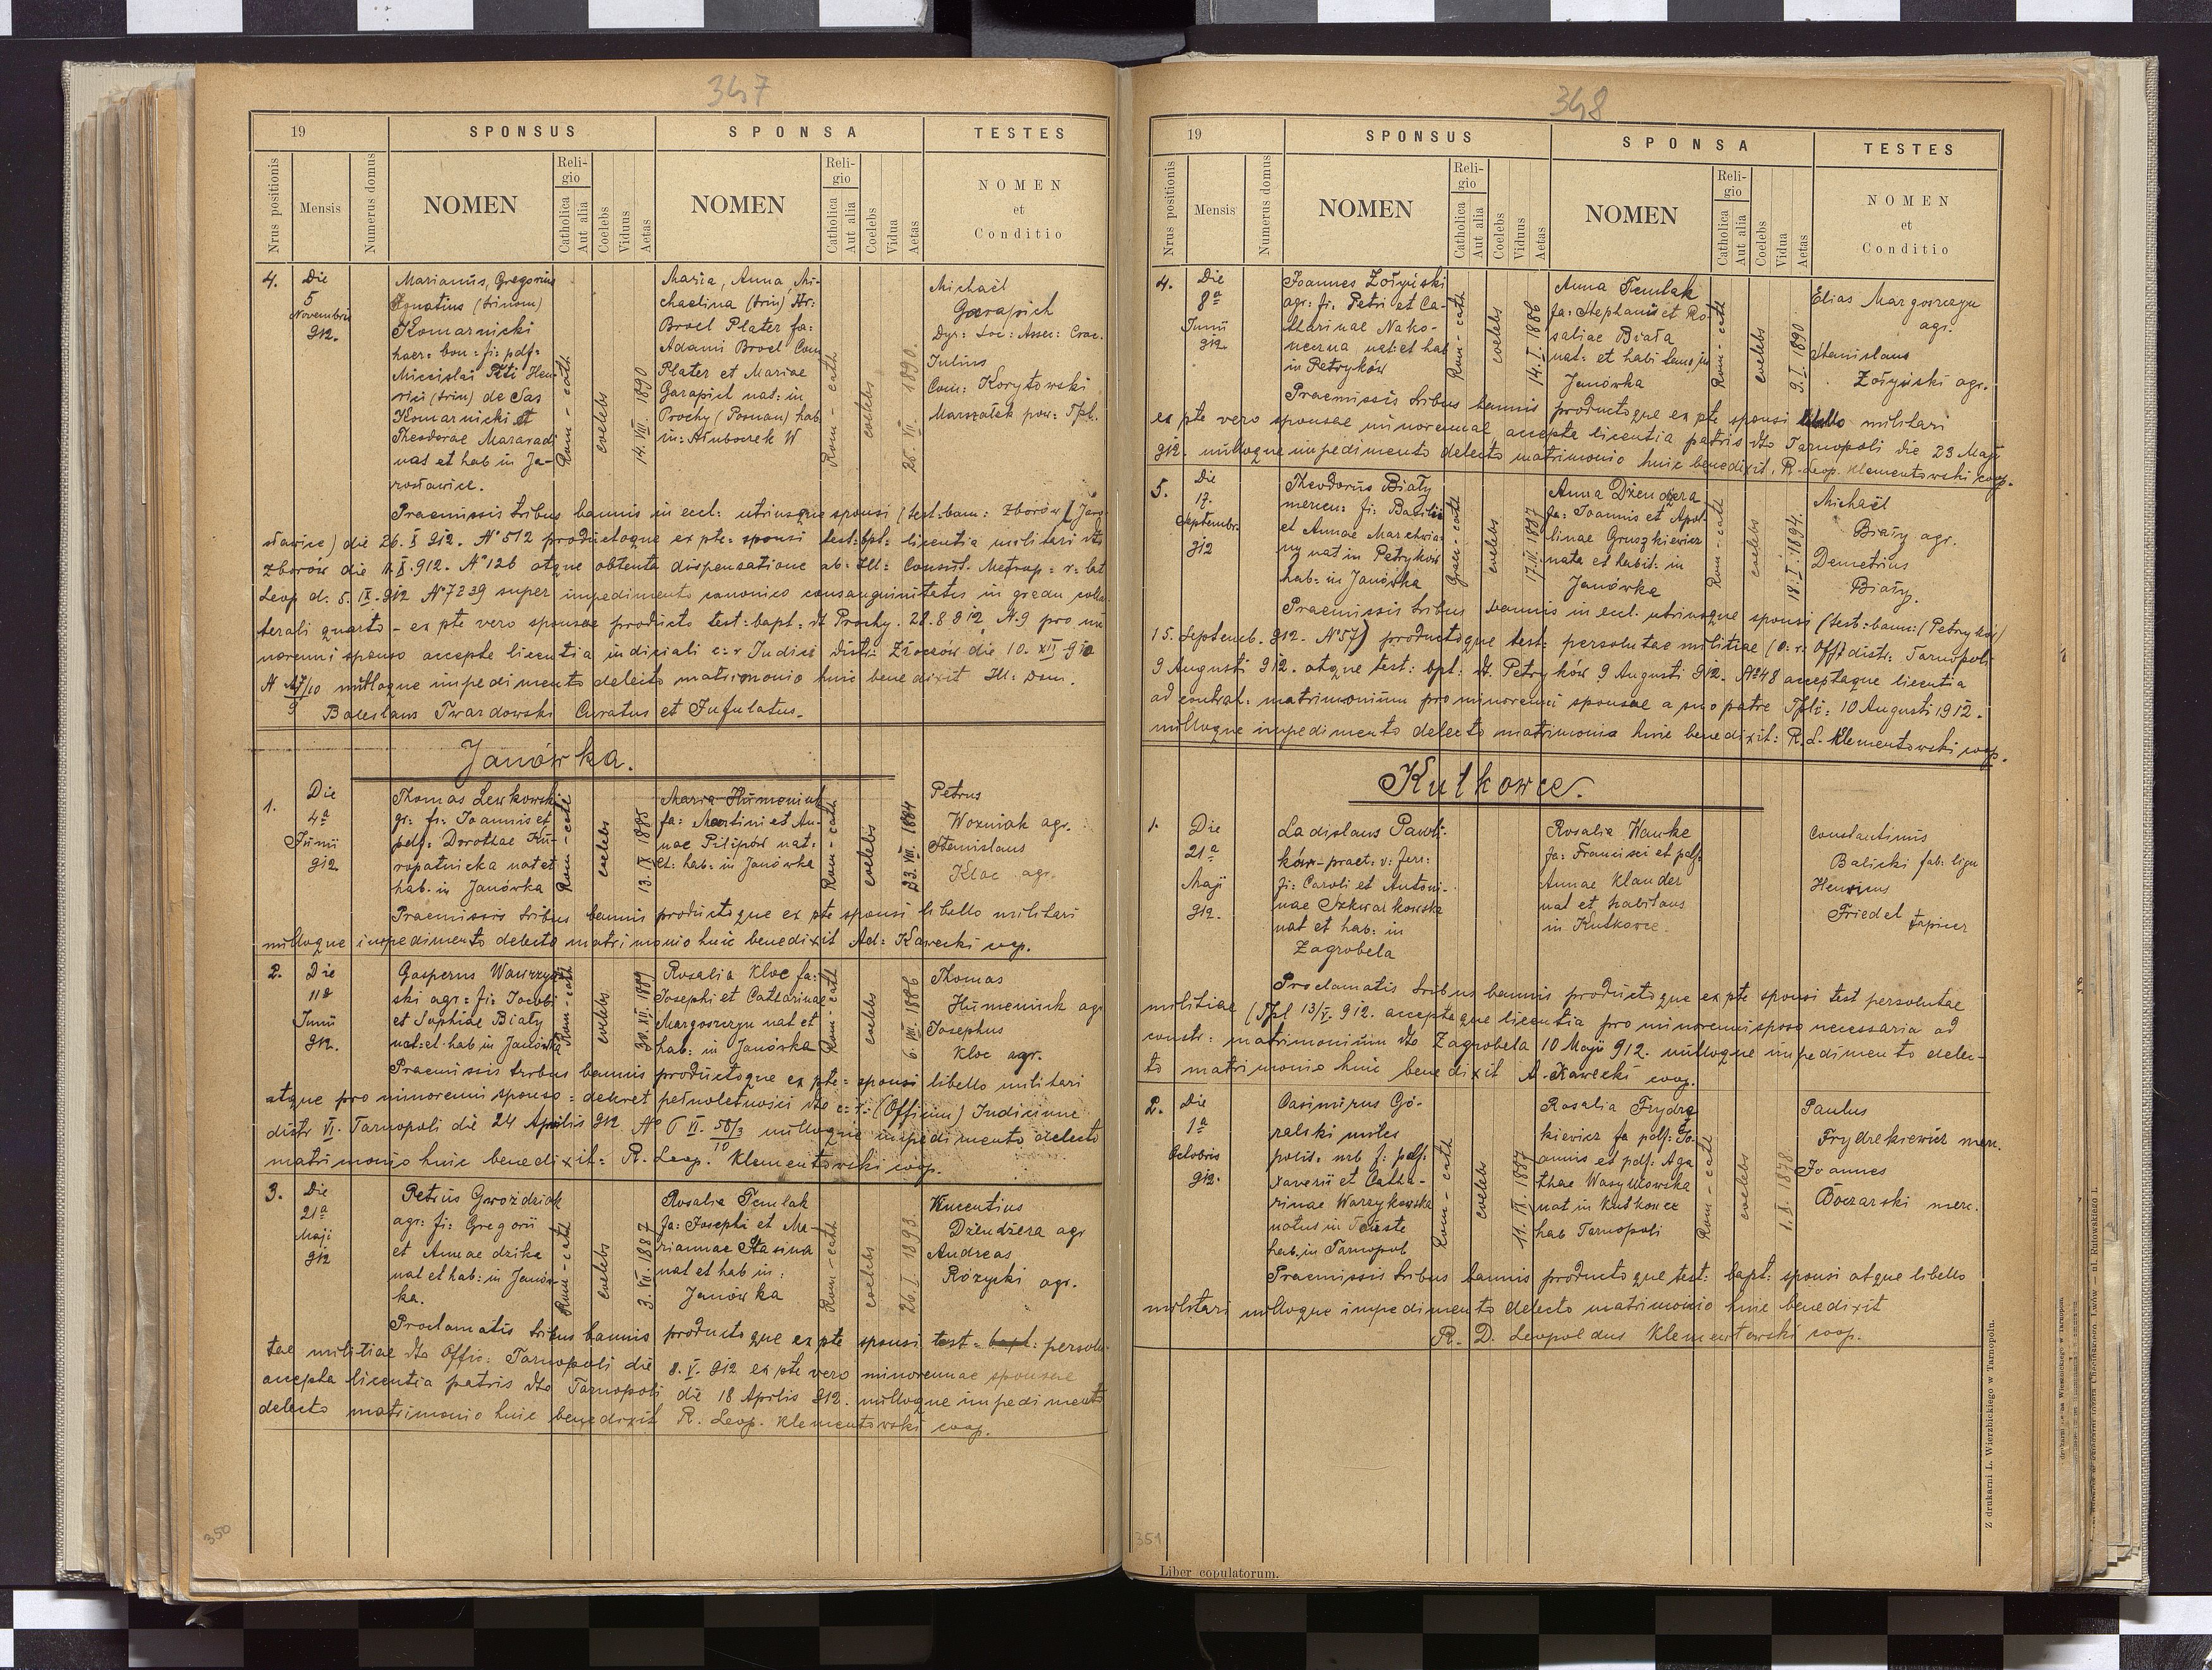 347
19
SPONSUS
SPONSA
TESTES
Nrus positionis
Mensis
Numerus domus
NOMEN
Religio
Catholica
Aut alia
Coelebs
Viduus
Aetas
NOMEN
Religio
Catholica
Aut alia
Coelebs
Vidua
Aetas
NOMEN
et
Conditio
4.
Die
5
Novembris
912.
Marianus, Gregorius
Ignatius (trinom)
Komarnicki
haer: bon: fi: pdf:
Miecislai Ptti Hen-
rici (trin) de Sas
Komarnicki et
Theodorae Maravadi
nas et hab in Ja-
rosławice.
Rom-cath
coelebs
14. VIII. 1890
Maria, Anna, Mi-
chaelina (trin) Hr:
Broel Plater fa:
Adami Broel Com
Plater et Mariae
Garapich nat: in
Prochy (Posnan) hab
in: Hłuboczek W
Rom-cath
coelebs
26. VII. 1890.
Michaël
Garapich
Dyr: Soc: Assec: Crac.
Julius
Com: Korytowski
Marszałek pow: Tpl.
Praemissis tribus bannis in eccl: utriusque sponsi (test: bann: Zborów (Jaro-
sławice) die 26. X 912. N° 512 productoque ex pte: sponsi test: bpt: licentia militari dto
Zborów die 11. X. 912. N° 126 atque obtenta dispensatione ab: Ill: Consist. Metrop: r: lat
Leop d. 5. IX. 912 N° 7239 super impedimento canonico consanguinitatis in gradu colla-
terali quarto - ex pte vero sponsae producto test: bapt: dt Prochy. 28.8 912 N. 9 pro mi
norenni sponso accepta licentia iudiciali c: r Iudici Distr: Złoczów die 10. XII 910
nulloque impedimento detecto matrimonio huic benedixit Ill: Dom.
Boleslaus Twardowski Curatus et Infulatus.
Janówka.
1.
Die
4ª
Junii
912.
Thomas Lewkowski
gr: fi: Joannis et
pdf: Dorothae Ku-
ropatnicka nat et
hab: in Janówka
Rom-cath
coelebs
13. IX. 1885
Maria Humeniuk
fa: Martini et An-
nae Pilipów nat:
et: hab: in Janówka
Rom-cath
coelebs
23. VII. 1884
Petrus
Wozniak agr.
Stanislaus
Kloc agr.
Praemissis tribus bannis productoque ex pte sponsi libello militari
nulloque impedimento detecto matrimonio huic benedixit Ad: Kawecki coop.
2.
Die
11ª
Junii
912.
Gasperus Wawrzyń
ski agr: fi: Jacobi
et Sophiae Biały
nat: et hab in Janówka
Rom-cath
coelebs
30. XII. 1889
Rosalia Kloc fa:
Josephi et Catharinae
Margoszczyn nat et
hab: in Janówka
Rom-cath
coelebs
6. VIII. 1886
Thomas
Humeniuk agr
Josephus
Kloc agr.
Praemissis tribus bannis productoque ex pte: sponsi libello militari
atque pro minorenni sponso: dekret pełnoletności dto c: r: (Officium) Iudicinne
distr VI. Tarnopoli die 24 Aprilis 912 N° 6 VI. 58/3 10 nulloque impedimento detecto
matrimonio huic benedixit: R. Leop. Klementowski coop.
3.
Die
21ª
Maji
912
Petrus Gwoździak
agr: fi: Gregorii
et Annae dzika
nat et hab: in Janów-
ka.
Rom-cath
coelebs
3. VII. 1887
Rosalia Temlak
fa: Josephi et Ma-
riannae Stasina
nat et hab in:
Janówka
Rom-cath
coelebs
26. I. 1893.
Vincentius
Dżendżera agr
Andreas
Rózycki agr.
Proclamatis tribus bannis productoque ex pte sponsi test: bapt: persolu-
tae militiae dto Offic: Tarnopoli die 8. V. 912 ex pte vero minorennae sponsae
accepta licentia patris dto Tarnopoli die 18 Aprilis 912. nulloque impedimento
detecto matrimonio huic benedixit R. Leop. Klementowski coop.
350
348
19
SPONSUS
SPONSA
TESTES
Nrus positionis
Mensis
Numerus domus
NOMEN
Religio
Catholica
Aut alia
Coelebs
Viduus
Aetas
NOMEN
Religio
Catholica
Aut alia
Coelebs
Vidua
Aetas
NOMEN
et
Conditio
4.
Die
8ª
Junii
912.
Joannes Zołyński
agr: fi: Petri et Ca-
tharinae Nako-
neczna nat: et hab
in Petryków
Rom-cath
coelebs
14. I. 1886
Anna Temlak
fa: Stephani et Ro-
saliae Biała
nat: et habitans in
Janówka
Rom-cath
coelebs
9. I. 1890.
Elias Margoszczyn
agr.
Stanislaus
Zołyński agr.
Praemissis tribus bannis productoque ex pte sponsi libello militari
ex pte vero sponsae minorennae accepta licentia patris dto Tarnopoli die 23 Maji
912. nulloque impedimento detecto matrimonio huic benedixit. R. Leop. Klementowski coop.
5.
Die
17.
Septembr.
912
Theodorus Biały
mercen: fi: Basilii
et Annae Marchwia-
ny nat in Petryków
hab: in Janówka
Graec-cath
coelebs
17. IV. 1887
Anna Dżendżera
fa: Joannis et Apol-
linae Gruszkiewicz
nata et habit: in
Janówka
Rom-cath
coelebs
18. I. 1894.
Michaël
Biały agr.
Demetrius
Biały.
Praemissis tribus bannis in eccl. utriusque sponsi (test: bann: (Petryków)
15. Septemb. 912. N° 57) productoque test: persolutae militiae (c: r: Off: distr: Tarnopoli
9 Augusti 912. atque test: bpt: dt. Petryków 9 Augusti 912. N° 48 acceptaque licentia
ad contrah: matrimonium pro minorenni sponsae a suo patre Tpli: 10 Augusti 1912.
nulloque impedimento detecto matrimonio huic benedixit: R. L. Klementowski coop.
Kutkowce.
1.
Die
21ª
Maji
912.
Ladislaus Pawli-
ków - praet: v: ferr:
fi: Caroli et Antoni-
nae Szkwarkowska
nat et hab: in
Zagrobela
Rosalia Wanke
fa: Francisci et pdf:
Annae Klander
nat et habitans
in Kutkowce.
Constantinus
Balicki fab: lign
Henricus
Friedel tapicer
Proclamatis tribus bannis productoque ex pte sponsi test persolutae
militiae (Tpl 13/V. 912. acceptaque licentia pro minorenni sposo necessaria ad
constr: matrimonium dto Zagrobela 10 Maji 912. nulloque impedimento detec-
to matrimonio huic benedixit A. Kawecki coop.
2.
Die
1ª
Octobris
912.
Casimirus Gó-
ralski miles
polit: urb f: pdf:
Xaverii et Catha-
rinae Warzykowska
natus in Touste
hab. in Tarnopol
Rom-cath
coelebs
11. IX. 1887
Rosalia Frydra
kiewicz fa pdf: Jo-
annis et pdf: Aga
thae Wasylkowska
nat in Kutkowce
hab Tarnopoli
Rom-cath
coelebs
1. X. 1878
Paulus
Frydrekiewicz merc.
Joannes
Boczarski merc.
Praemissis tribus bannis productoque test: bapt: sponsi atque libello
militari nulloque impedimento detecto matrimonio huic benedixit
R. D. Leopoldus Klementowski coop.
351
Liber copulatorum.
Z drukarni L. Wierzbickiego w Tarnopolu.